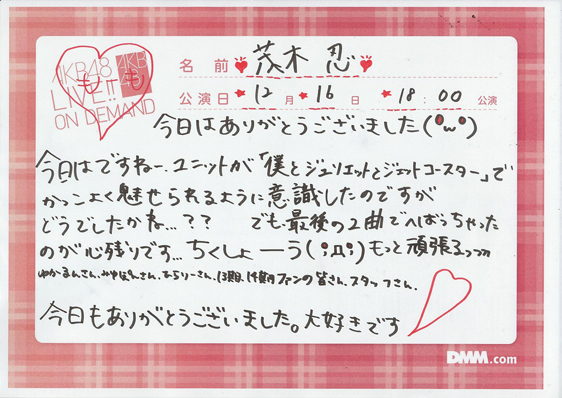 AKB48
LIVE!!
ON DEMAND
AKB
48
も も
名前 茂木 忍
公演日 12月16日 18:00 公演
今日はありがとうございました(°ω°)
今日はですねー、ユニットが「僕とジュリエットとジェットコースター」で
かっこよく魅せられるように意識したのですが
どうでしたかね…?? でも最後の2曲でへばっちゃった
のが心残りです…ちくしょーう(;д;)もっと頑張るっつ
ゆかるんさん、みやぽんさん、
13期、14期、ファンの皆さん、スタッフさん、
今日もありがとうございました。大好きです
DMM.com